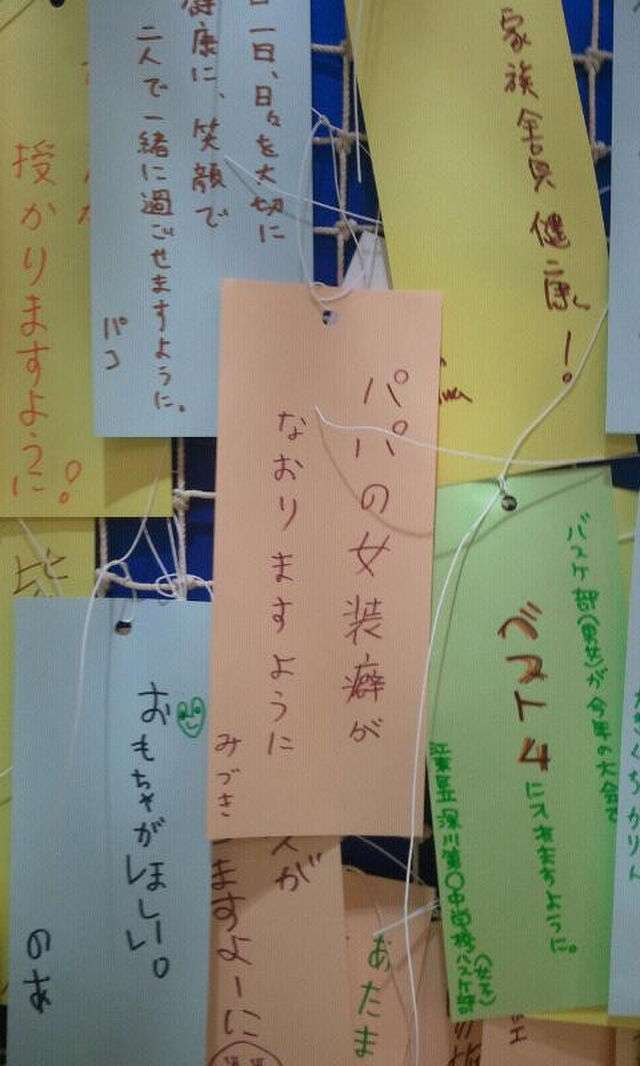 一日、日々を大切に
健康に、笑顔で
二人で一緒に過ごせますように。
授かりますように!
家族全員健康!
パパの女装癖が
なおりますように
みづき
バスケ部(男女)が今年の大会で
ベスト4
に入れますように。
江東区立深川第〇中学校バスケ部
(女子)
おもちゃがほしーい。
のあ
が
ますよーに
あたま